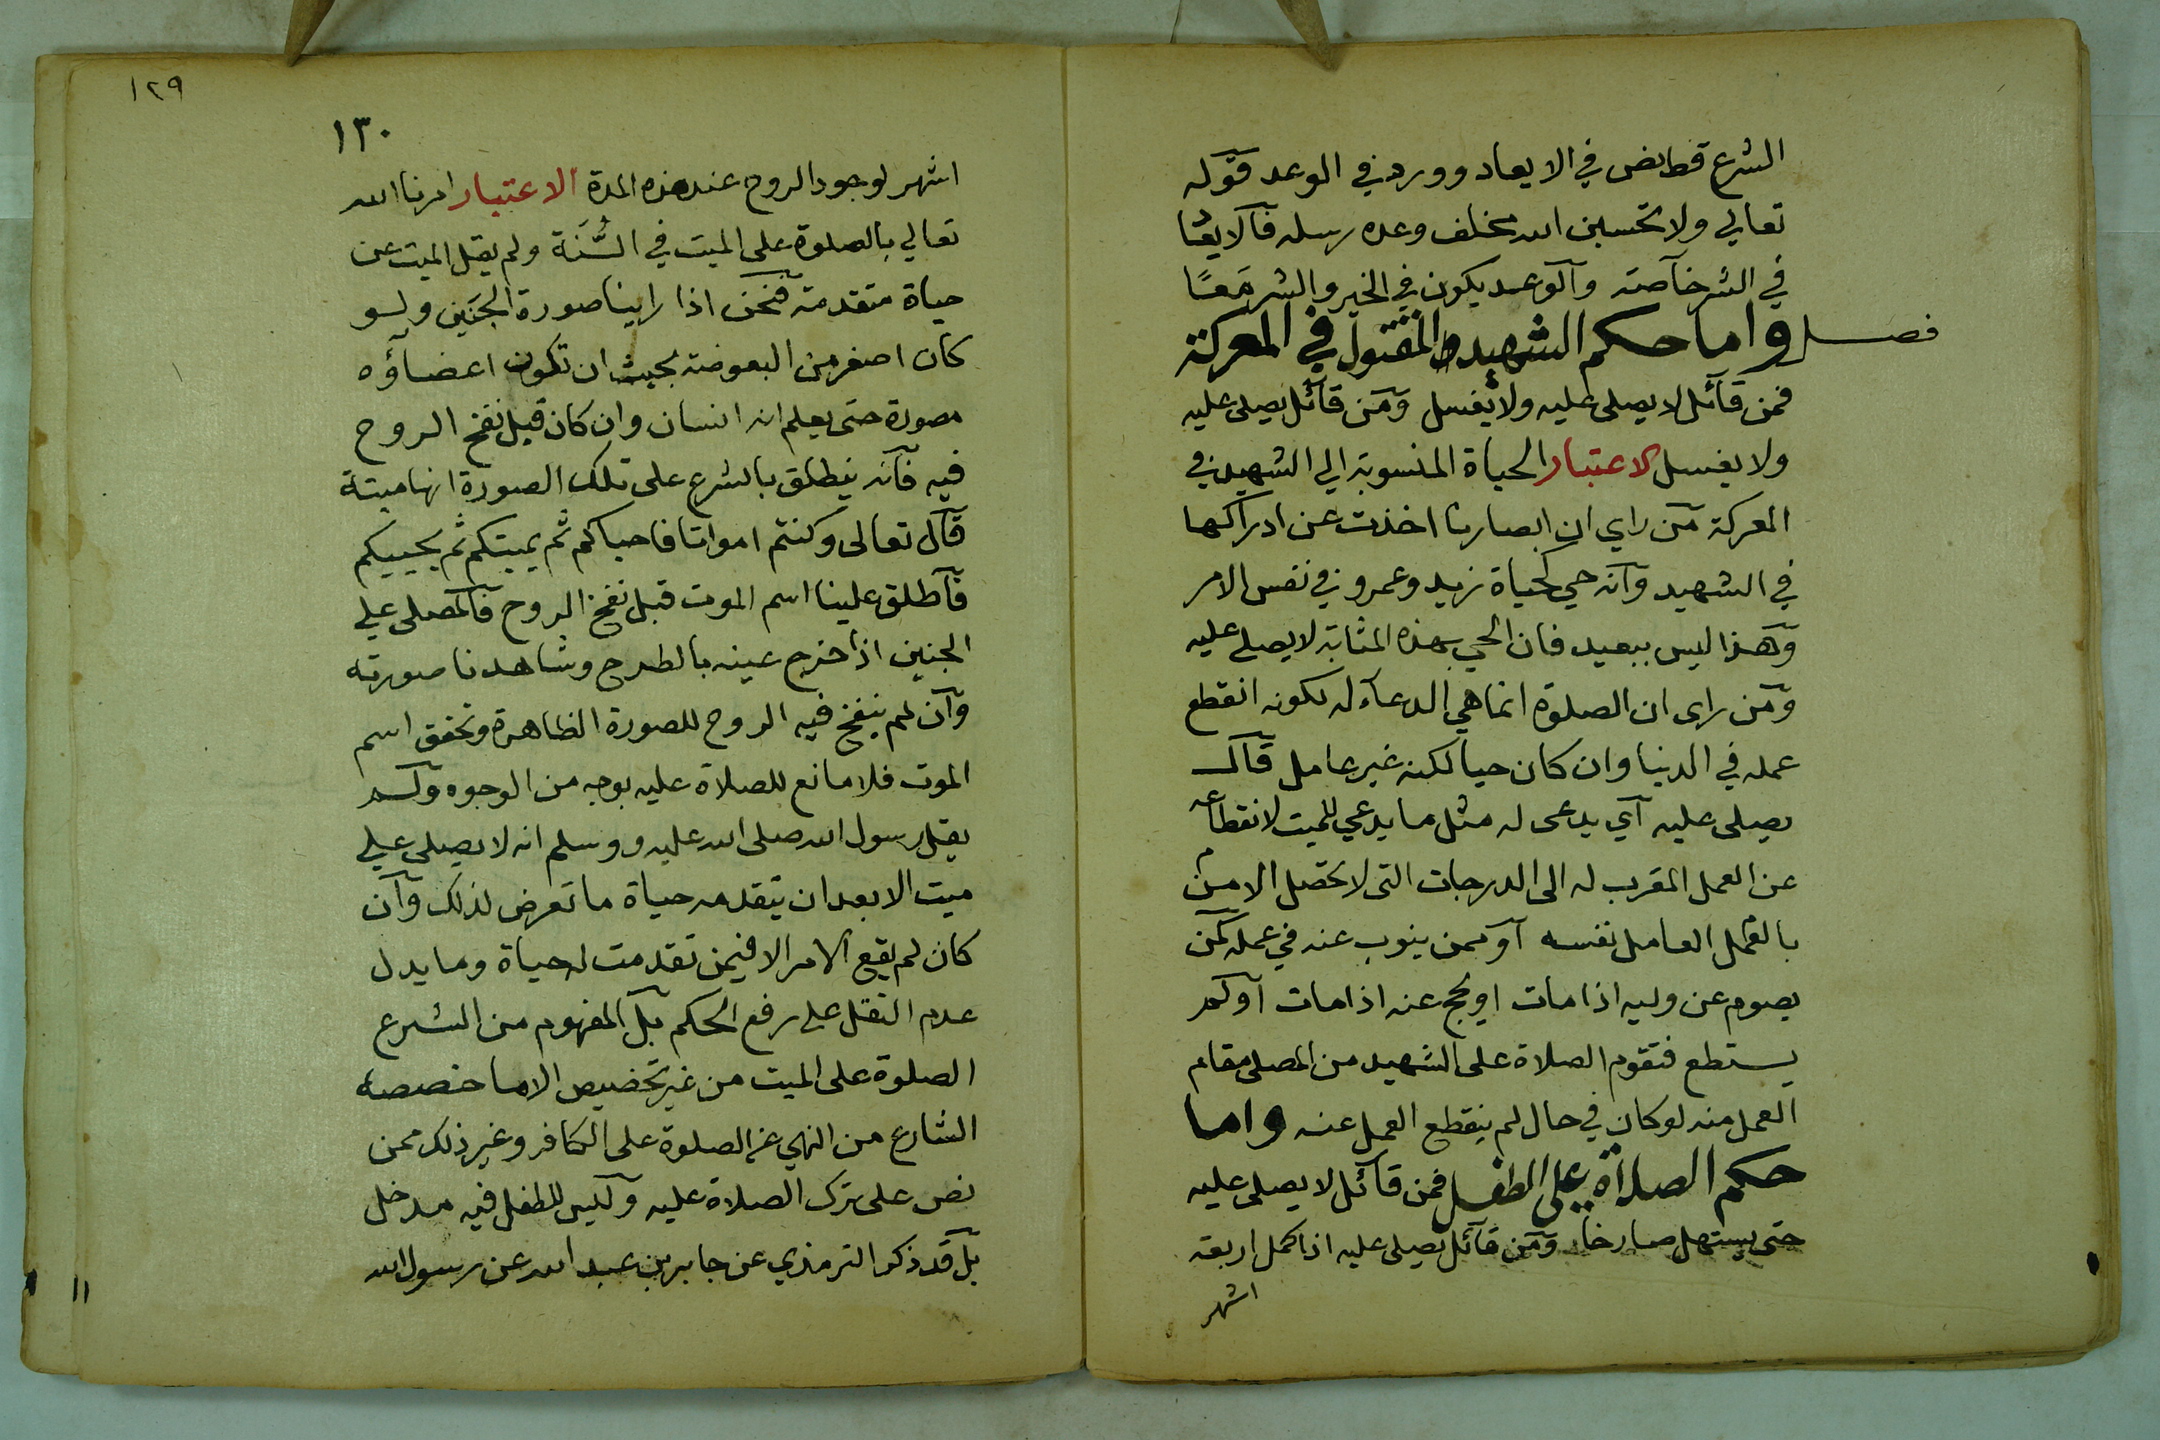 الشرع قط نص في الايعاد وورد في الوعد قوله
تعالي ولا تحسبن الله مخلف وعده رسله فالايعا
في الشر خاصة والوعد يكون في الخير والشر معًا
فصل واما حكم الشهيد المقتول في المعركة
فمن قائل لا يصلى عليه ولا يغسل ومن قائل يصلى عليه
ولا يغسل الاعتبار الحياة المنسوبة الي الشهيد في
المعركة من راي ان ابصارنا اخذت عن ادراكها
في الشهيد وانه حي كحياة زيد وعمرو في نفس الامر
وهذا ليس ببعيد فان الحي بهذه المثابة لا يصلي عليه
ومن راى ان الصلوة انما هي الدعاء له لكونه انقطع
عمله في الدنيا وان كان حيا لكنه غير عامل قال
يصلى عليه اي يدعى له مثل ما يدعي للميت لانقطاعه
عن العمل المقرب له الى الدرجات التى لا تحصل الا من
بالعمل العامل نفسه او ممن ينوب عنه في عمله كمن
يصوم عن وليه اذا مات او يحج عنه اذا مات او لم
يستطع فتقوم الصلاة على الشهيد من المصلى مقام
العمل منه لو كان في حال لم ينقطع العمل عنه واما
حكم الصلاة على الطفل فمن قائل لا يصلى عليه
حتى يستهل صارخا ومن قائل يصلى عليه اذا كمل اربعة
اشهر
١٢٩
١٣٠
اشهر لوجود الروح عند هذه المدة الاعتبار امرنا الله
تعالي بالصلوة على الميت في السُّنَة ولم يقل الميت عن
حياة متقدمة فنحن اذا راينا صورة الجنين ولو
كان اصغر من البعوضة بحيث ان تكون اعضاؤه
مصورة حتى يعلم انه انسان وان كان قبل نفخ الروح
فيه فانه ينطلق بالشرع على تلك الصورة انها ميتة
قال تعالى وكنتم امواتا فاحياكم ثم يميتكم ثم يحييكم
فاطلق علينا اسم الموت قبل نفخ الروح فالمصلى علي
الجنين اذا خرج عينه بالطرح وشاهدنا صورته
وان لم ينفخ فيه الروح للصورة الظاهرة وتحقق اسم
الموت فلا مانع للصلاة عليه بوجه من الوجوه ولم
يقل رسول الله صلى الله عليه ووسلم انه لا يصلى علي
ميت الا بعد ان تتقدمه حياة ما تعرض لذلك وان
كان لم يقع الامر الا فيمن تقدمت له حياة وما يدل
عدم النقل علي رفع الحكم بل المفهوم من الشرع
الصلوة على الميت من غير تخصيص الا ما خصصه
الشارع من النهي عن الصلوة على الكافر وغير ذلك ممن
نص على ترك الصلاة عليه وليس للطفل فيه مدخل
بل قد ذكر الترمذي عن جابر بن عبد الله عن رسول الله
١١